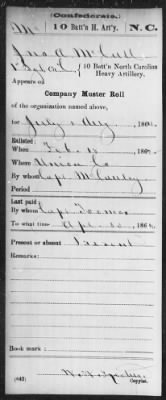 Confederate.
Mc 10 Batt'n H. Art'y. N.C.
Jno A McCall
10 Batt'n North Carolina
Heavy Artillery.
Appears on
Company Muster Roll
of the organization named above,
for July & Aug, 186
Enlisted:
When Feb. 186
Where Union Co
By whom Capt McCauley
Period
Last paid:
By whom Capt
To what time Apl. 30, 186
Present or absent Present
Remarks:
Book mark:
(642) Copyist.